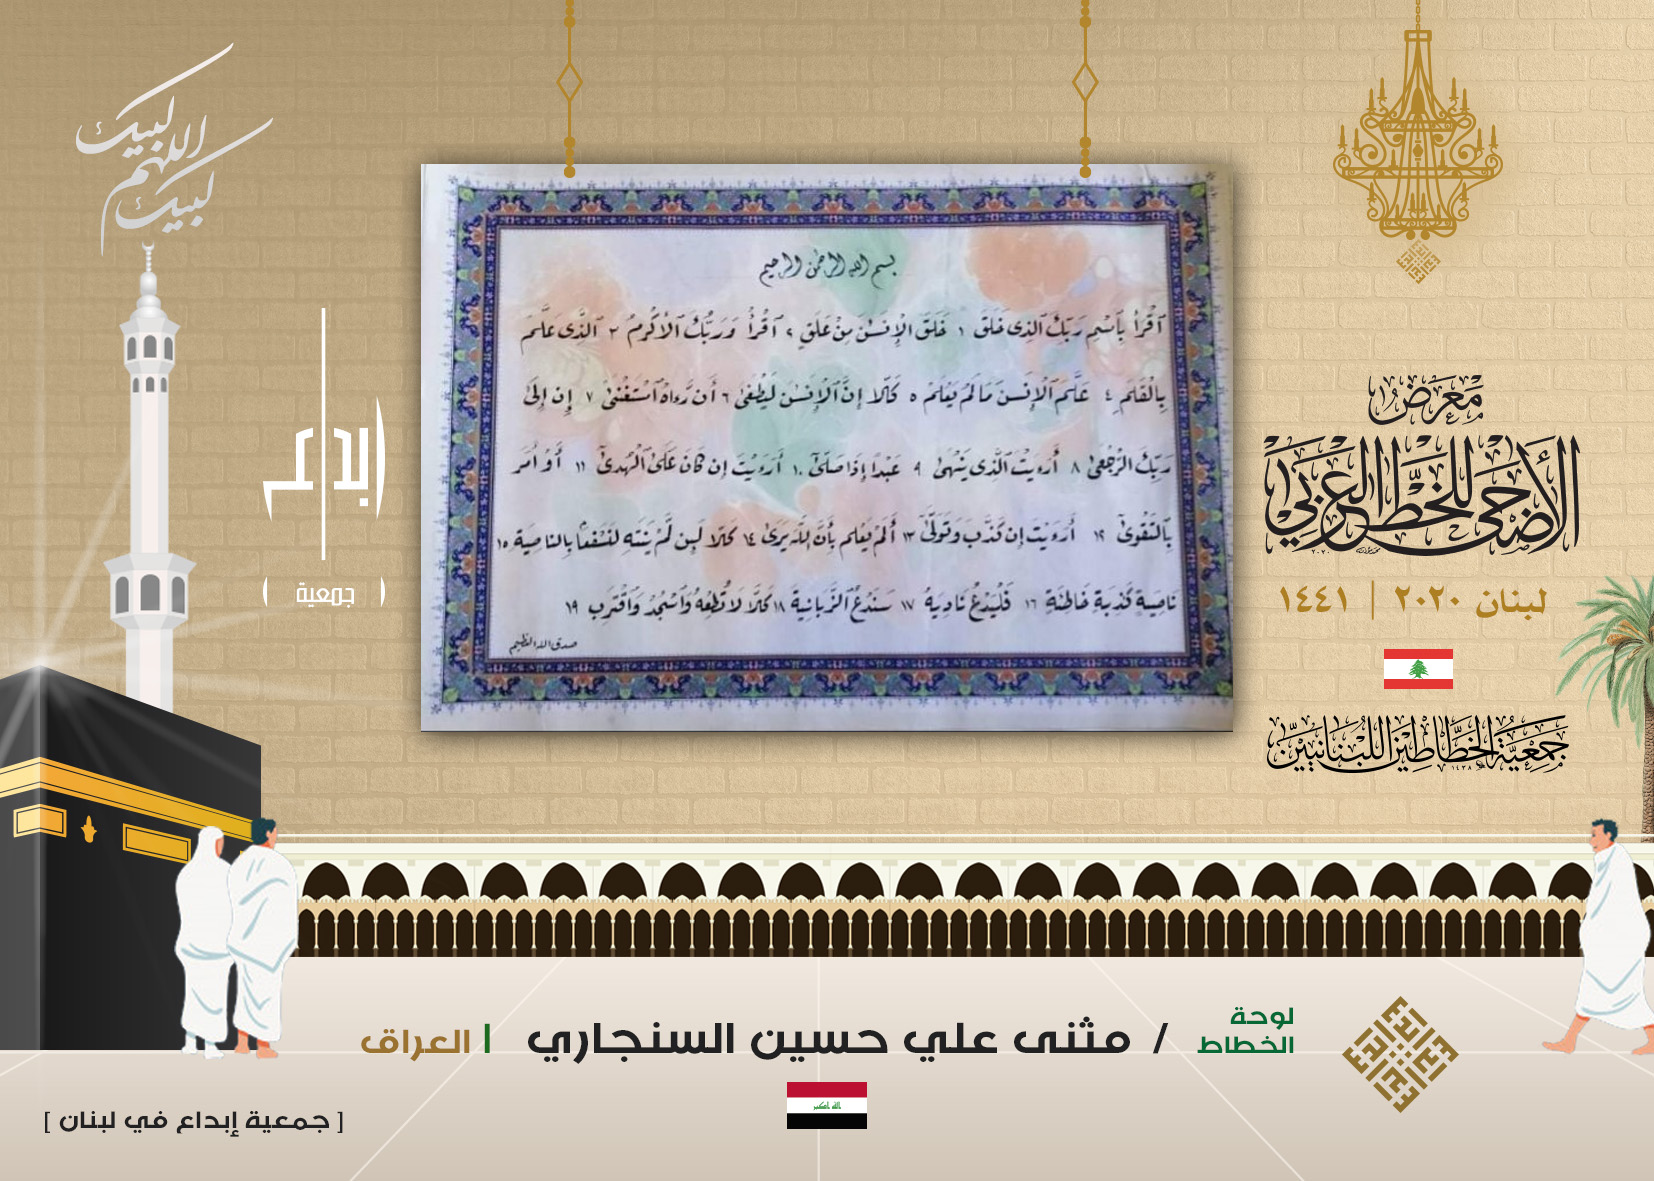 لبيك
اللهم
لبيك
إبداع
جمعية
بسم الله الرحمن الرحيم
ٱقْرَأْ بِٱسْمِ رَبِّكَ ٱلَّذِى خَلَقَ ١ خَلَقَ ٱلْإِنسَٰنَ مِنْ عَلَقٍ ٢ ٱقْرَأْ وَرَبُّكَ ٱلْأَكْرَمُ ٣ ٱلَّذِى عَلَّمَ
بِالْقَلَمِ ٤ عَلَّمَ ٱلْإِنسَٰنَ مَا لَمْ يَعْلَمْ ٥ كَلَّا إِنَّ ٱلْإِنسَٰنَ لَيَطْغَىٰ ٦ أَن رَّءَاهُ ٱسْتَغْنَىٰ ٧ إِن إِلَىٰ
رَبِّكَ ٱلرُّجْعَىٰ ٨ أَرَءَيْتَ ٱلَّذِى يَنْهَىٰ ٩ عَبْدًا إِذَا صَلَّىٰ ١٠ أَرَءَيْتَ إِن كَانَ عَلَى ٱلْهُدَىٰ ١١ أَوْ أَمَرَ
بِالتَّقْوَىٰ ١٢ أَرَءَيْتَ إِن كَذَّبَ وَتَوَلَّىٰ ١٣ أَلَمْ يَعْلَم بِأَنَّ ٱللَّهَ يَرَىٰ ١٤ كَلَّا لَئِن لَّمْ يَنتَهِ لَنَسْفَعًا بِالنَّاصِيَةِ ١٥
نَاصِيَةٍ كَٰذِبَةٍ خَاطِئَةٍ ١٦ فَلْيَدْعُ نَادِيَهُ ١٧ سَنَدْعُ ٱلزَّبَانِيَةَ ١٨ كَلَّا لَا تُطِعْهُ وَٱسْجُدْ وَٱقْتَرِب ١٩
صدق الله العظيم
مَعرَض
الأضحى للخط العربي
٢٠٢٠
لبنان ٢٠٢٠ | ١٤٤١
جمعية الخطاطين اللبنانيين
١٤٣٨
لوحة
الخطاط / مثنى علي حسين السنجاري | العراق
الله أكبر
[ جمعية إبداع في لبنان ]